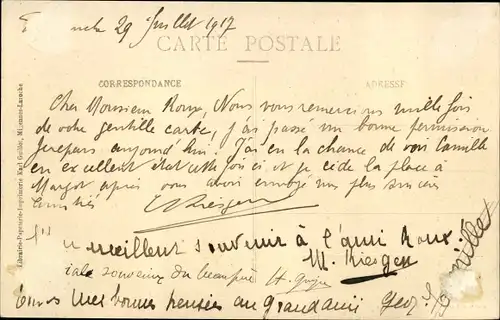 29 Juillet 1917
CARTE POSTALE
CORRESPONDANCE
ADRESSE
Cher Monsieur Roux, Nous vous remercions mille fois
de votre gentille carte, j'ai passé une bonne permission
Je repars aujourd'hui. J'ai eu la chance de voir Camille
en excellent état cette fois ci et je cède la place à
Margot après vous avoir envoyé nos plus sincères
amitiés
Kiesgen
meilleur souvenir à l'ami Roux
M. Kiesgen
souvenirs du beaupère H.
mes bonnes pensées au grand ami Geo
Camille
Librairie-Papeterie-Imprimerie Karl